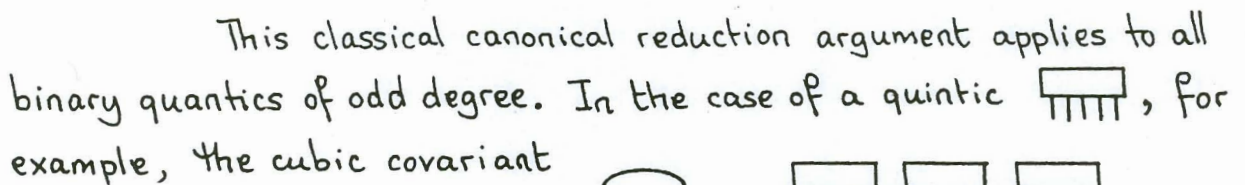 This classical canonical reduction argument applies to all
binary quantics of odd degree. In the case of a quintic , for
example, the cubic covariant